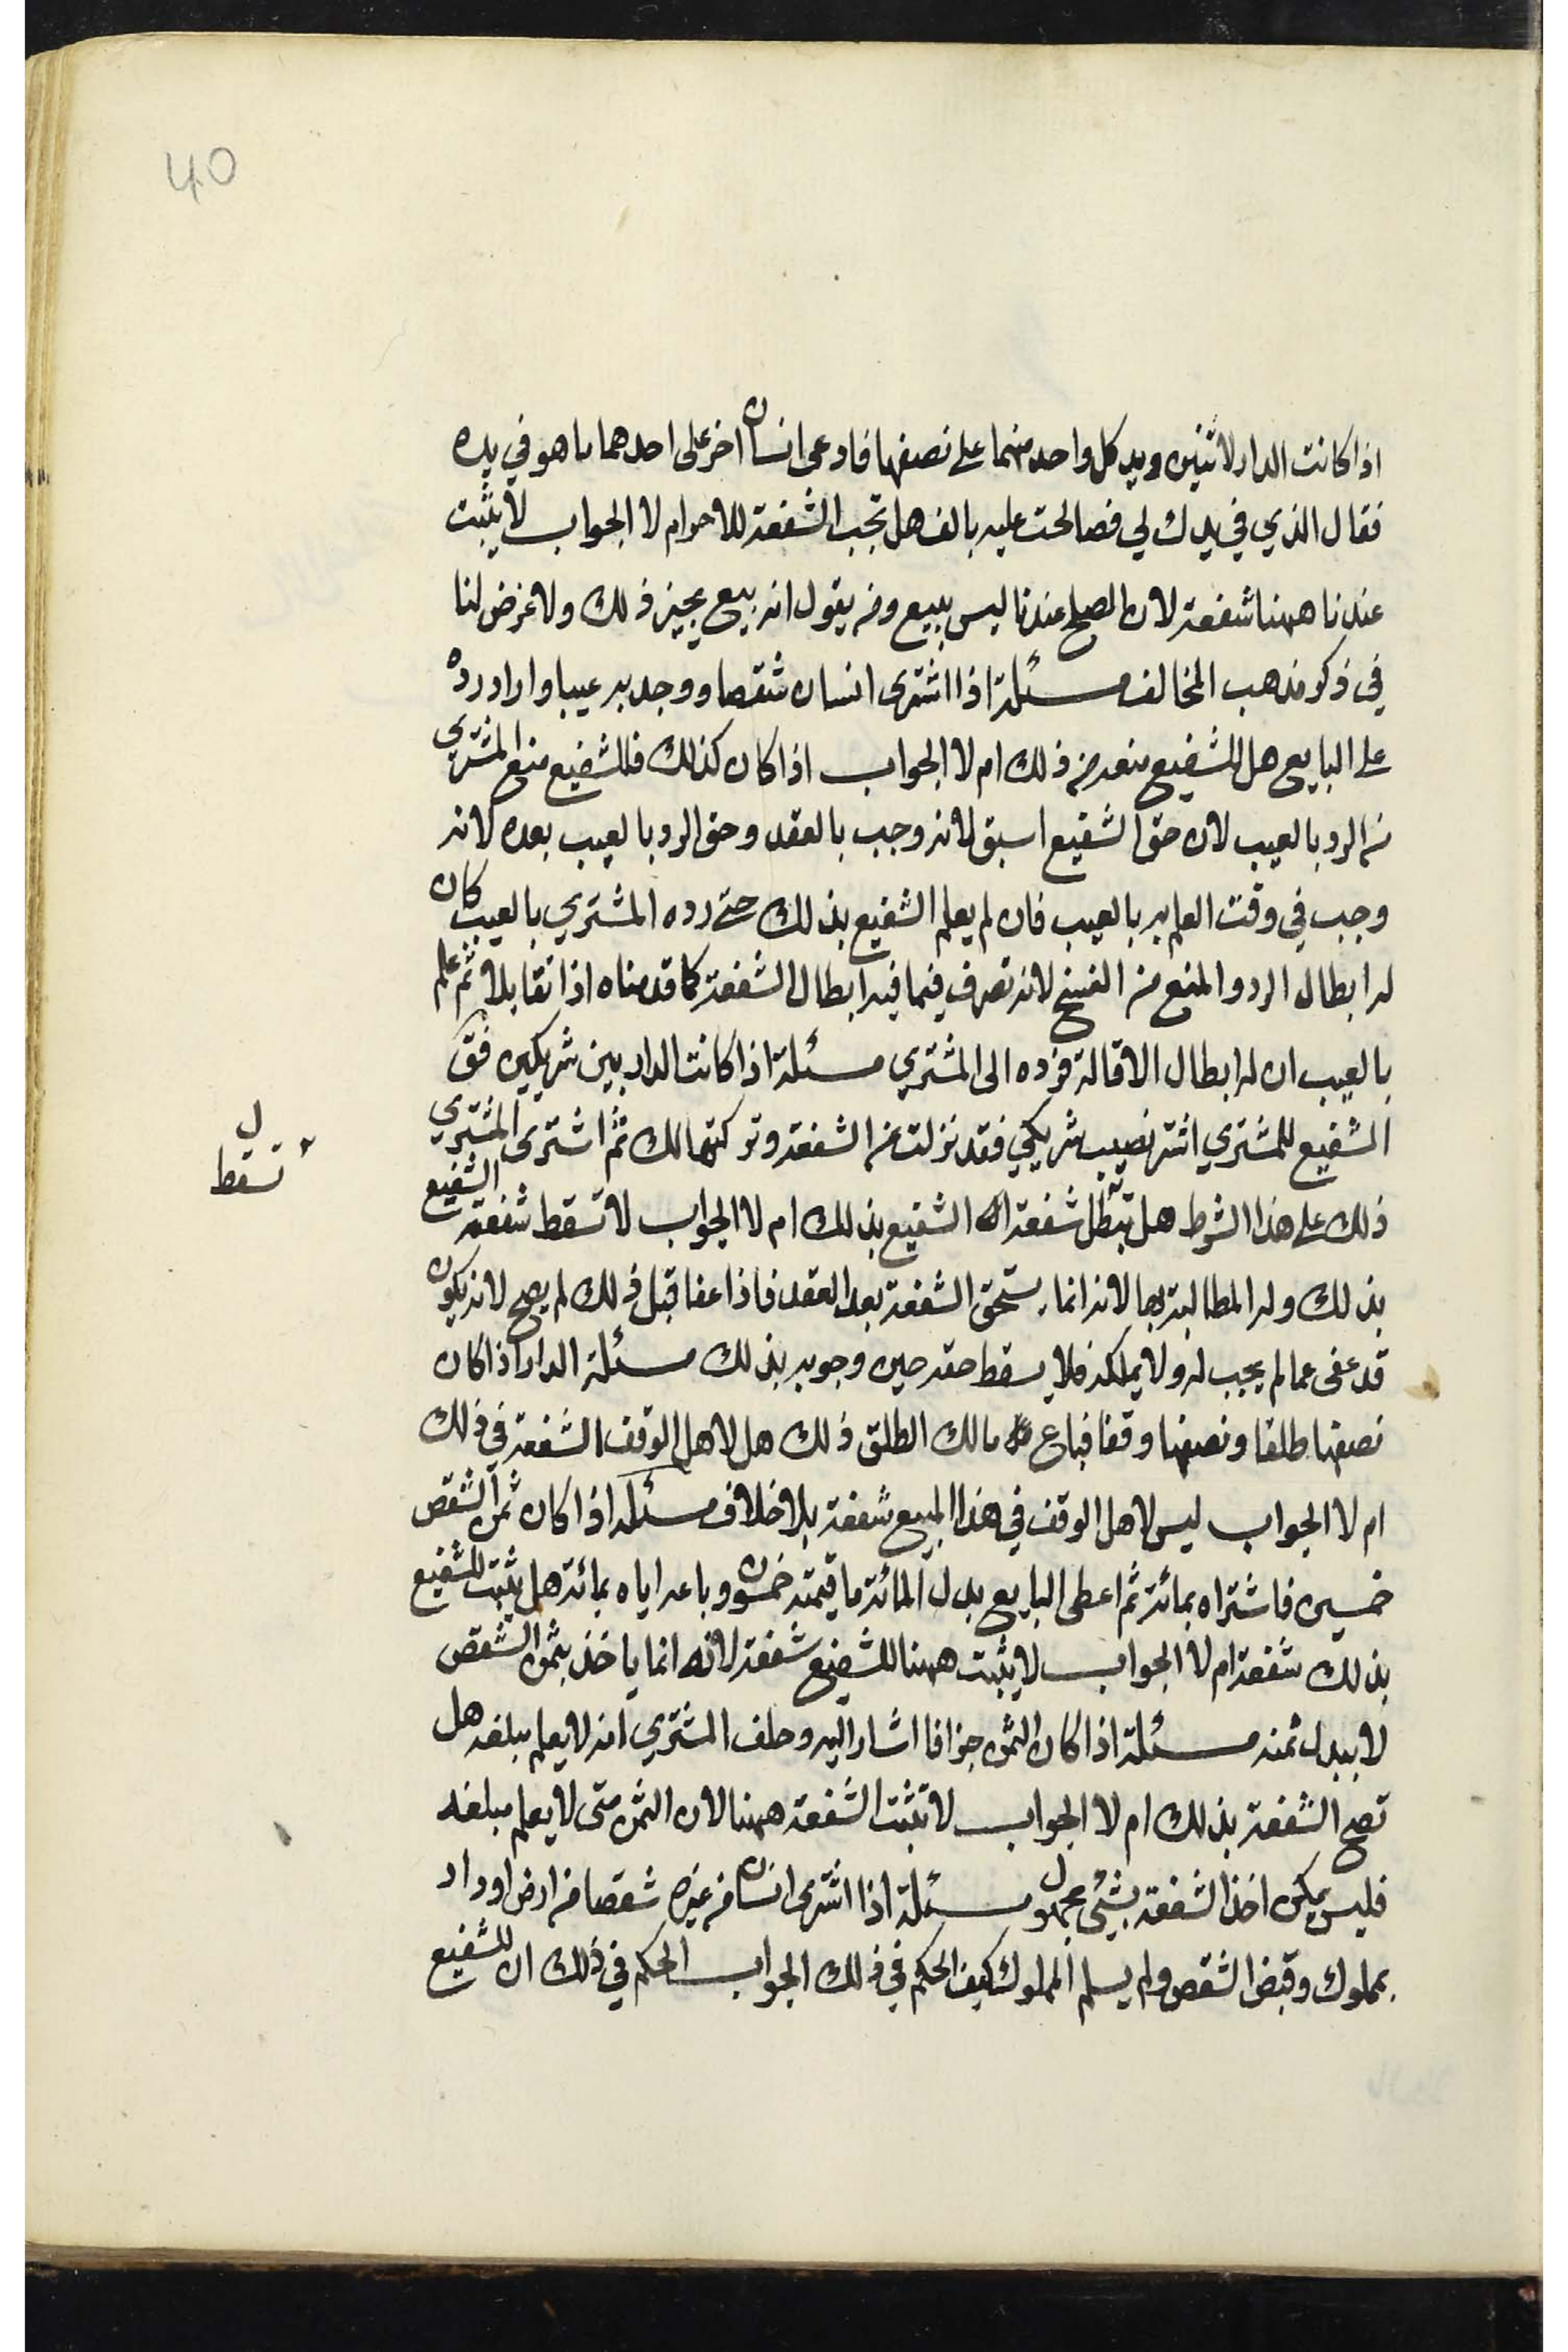 40
اذا كانت الدار لاثنين ويد كل واحد منهما على نصفها فادعى انسان اخر على احدهما ما هو في يده
فقال الذي في يدك لي فصالحت عليه بالف هل تجب الشفعة للاخر ام لا الجواب لا يثبت
عندنا ههنا شفعة لان الصلح عندنا ليس ببيع ومن يقول انه بيع يجيز ذلك ولا غرض لنا
في ذكر مذهب المخالف مسئلة اذا اشترى انسان شقصا ووجد به عيبا واراد رده
على البايع هل للشفيع منعه من ذلك ام لا الجواب اذا كان كذلك فللشفيع منع المشتري
من الرد بالعيب لان حق الشفيع اسبق لانه وجب بالعقد وحق الرد بالعيب بعده لانه
وجب في وقت العلم به بالعيب فان لم يعلم الشفيع بذلك حتى رده المشتري بالعيب كان
له ابطال الرد والمنع من الفسخ لانه تصرف فيما فيه ابطال الشفعة كما قدمناه اذا تقايلا ثم علم
بالعيب ان له ابطال الاقالة فرده الى المشتري مسئلة اذا كانت الدار بين شريكين فق
الشفيع للمشتري اشتر نصيب شريكي فقد نزلت من الشفعة وتركتها لك ثم اشترى المشتري
ل
تسقط
ذلك على هذا الشرط هل تبطل شفعة الشفيع بذلك ام لا الجواب لا تسقط شفعة الشفيع
بذلك وله المطالبة بها لانه انما يستحق الشفعة بعد العقد فاذا عفا قبل ذلك لم يصح لانه يكون
قد عفى عما لم يجب له ولا يملكه فلا يسقط حقه حين وجوبه بذلك مسئلة الدار اذا كان
نصفها طلقا ونصفها وقفا فباع مالك الطلق ذلك هل لاهل الوقف الشفعة في ذلك
ام لا الجواب ليس لاهل الوقف في هذا المبيع شفعة بلا خلاف مسئلة اذا كان ثمن الشقص
خمسين فاشتراه بمائة ثم اعطى البايع بدل المائة ما قيمته خمسون وباعه اياه بمائة هل يثبت للشفيع
بذلك شفعة ام لا الجواب لا يثبت ههنا للشفيع شفعة لانه انما ياخذ بثمن الشقص
لا ببدل ثمنه مسئلة اذا كان الثمن جزافا اشار اليه وحلف المشتري انه لا يعلم مبلغه هل
تصح الشفعة بذلك ام لا الجواب لا تثبت الشفعة ههنا لان الثمن متى لا يعلم مبلغه
فليس يمكن اخذ الشفعة بشئ مجهول مسئلة اذا اشترى انسان من غيره شقصا من ارض او دار
بمملوك وقبض الشقص ولم يسلم المملوك كيف الحكم في ذلك الجواب الحكم في ذلك ان للشفيع